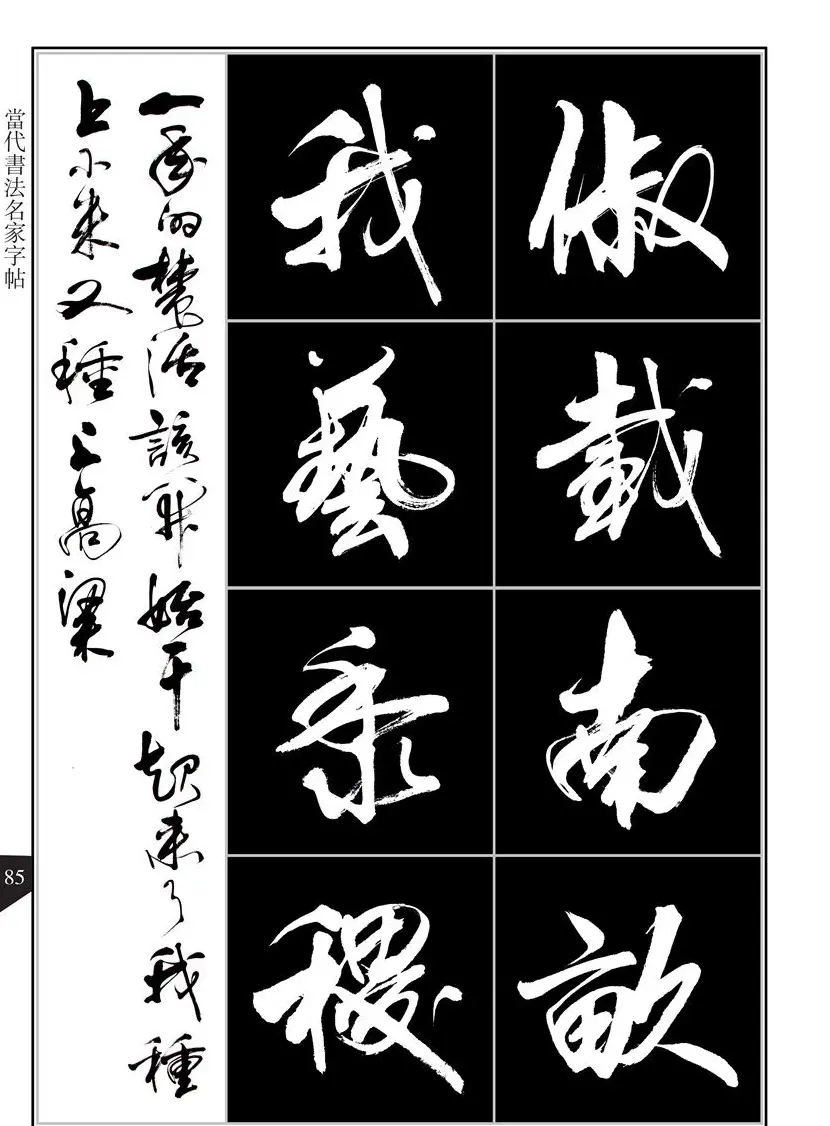 俶載南畝
我藝黍稷
一年的農活該開始幹起來了我種
上小米又種上高粱
當代書法名家字帖
85